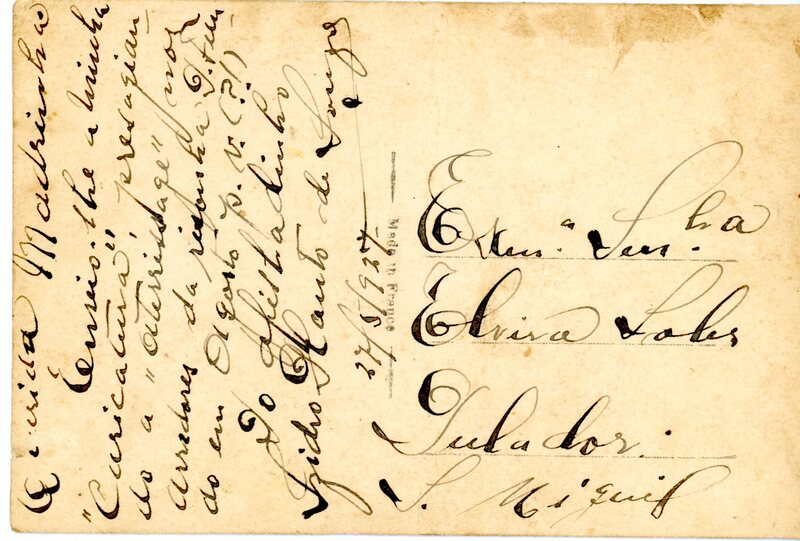 Querida Madrinha
Envio-lhe a minha
"Caricatura", presagian-
do a "aterrisage" nos
arredores da risonha
do em Agosto p. v. (?!)
Do afilhadinho
Izidro Couto de Souza
27/5/927
Made in France
Exm.ª Senr.ha
Elvira Lobs
Pulador.
S. Miguel